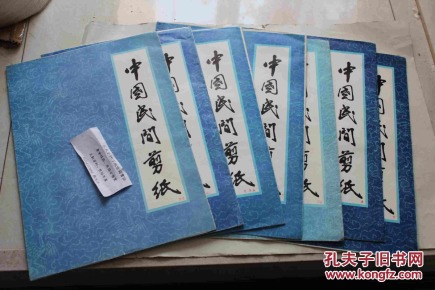 中国民间剪纸
中国民间剪纸
中国民间剪纸
中国民间剪纸
中国民间剪纸
中国民间剪纸
孔夫子旧书网
www.kongfz.com